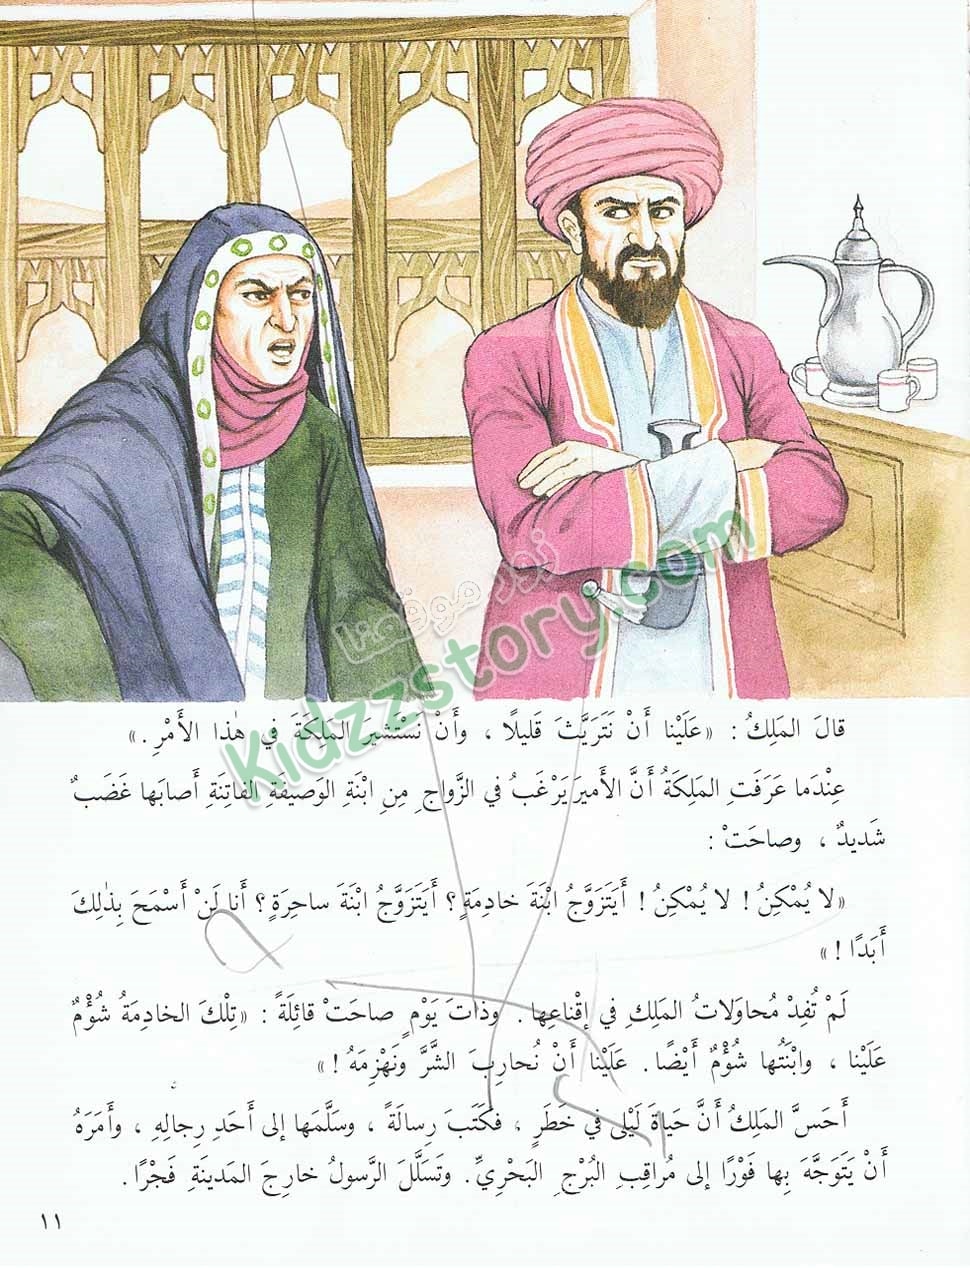 نور موقعنا
Kidzzstory.com
قالَ المَلِكُ : «عَلَيْنا أَنْ نَتَرَيَّثَ قَليلًا ، وأَنْ نَسْتَشيرَ المَلِكَةَ في هٰذا الأَمْرِ .»
عِنْدَما عَرَفَتِ المَلِكَةُ أَنَّ الأَميرَ يَرْغَبُ في الزَّواجِ مِنِ ابْنَةِ الوَصيفَةِ الفاتِنَةِ أَصابَها غَضَبٌ
شَديدٌ ، وصاحَتْ :
«لا يُمْكِنُ ! لا يُمْكِنُ ! أَيَتَزَوَّجُ ابْنَةَ خادِمَةٍ ؟ أَيَتَزَوَّجُ ابْنَةَ ساحِرَةٍ ؟ أَنا لَنْ أَسْمَحَ بِذٰلِكَ
أَبَدًا ! »
لَمْ تُفِدْ مُحاوَلاتُ المَلِكِ في إِقْناعِها . وذاتَ يَوْمٍ صاحَتْ قائِلَةً : «تِلْكَ الخادِمَةُ شُؤْمٌ
عَلَيْنا ، وابْنَتُها شُؤْمٌ أَيْضًا . عَلَيْنا أَنْ نُحارِبَ الشَّرَّ ونَهْزِمَهُ ! »
أَحَسَّ المَلِكُ أَنَّ حَياةَ لَيْلى في خَطَرٍ ، فَكَتَبَ رِسالَةً ، وسَلَّمَها إلى أَحَدِ رِجالِهِ ، وأَمَرَهُ
أَنْ يَتَوَجَّهَ بِها فَوْرًا إلى مُراقِبِ البُرْجِ البَحْرِيِّ . وتَسَلَّلَ الرَّسولُ خارِجَ المَدينَةِ فَجْرًا .
١١